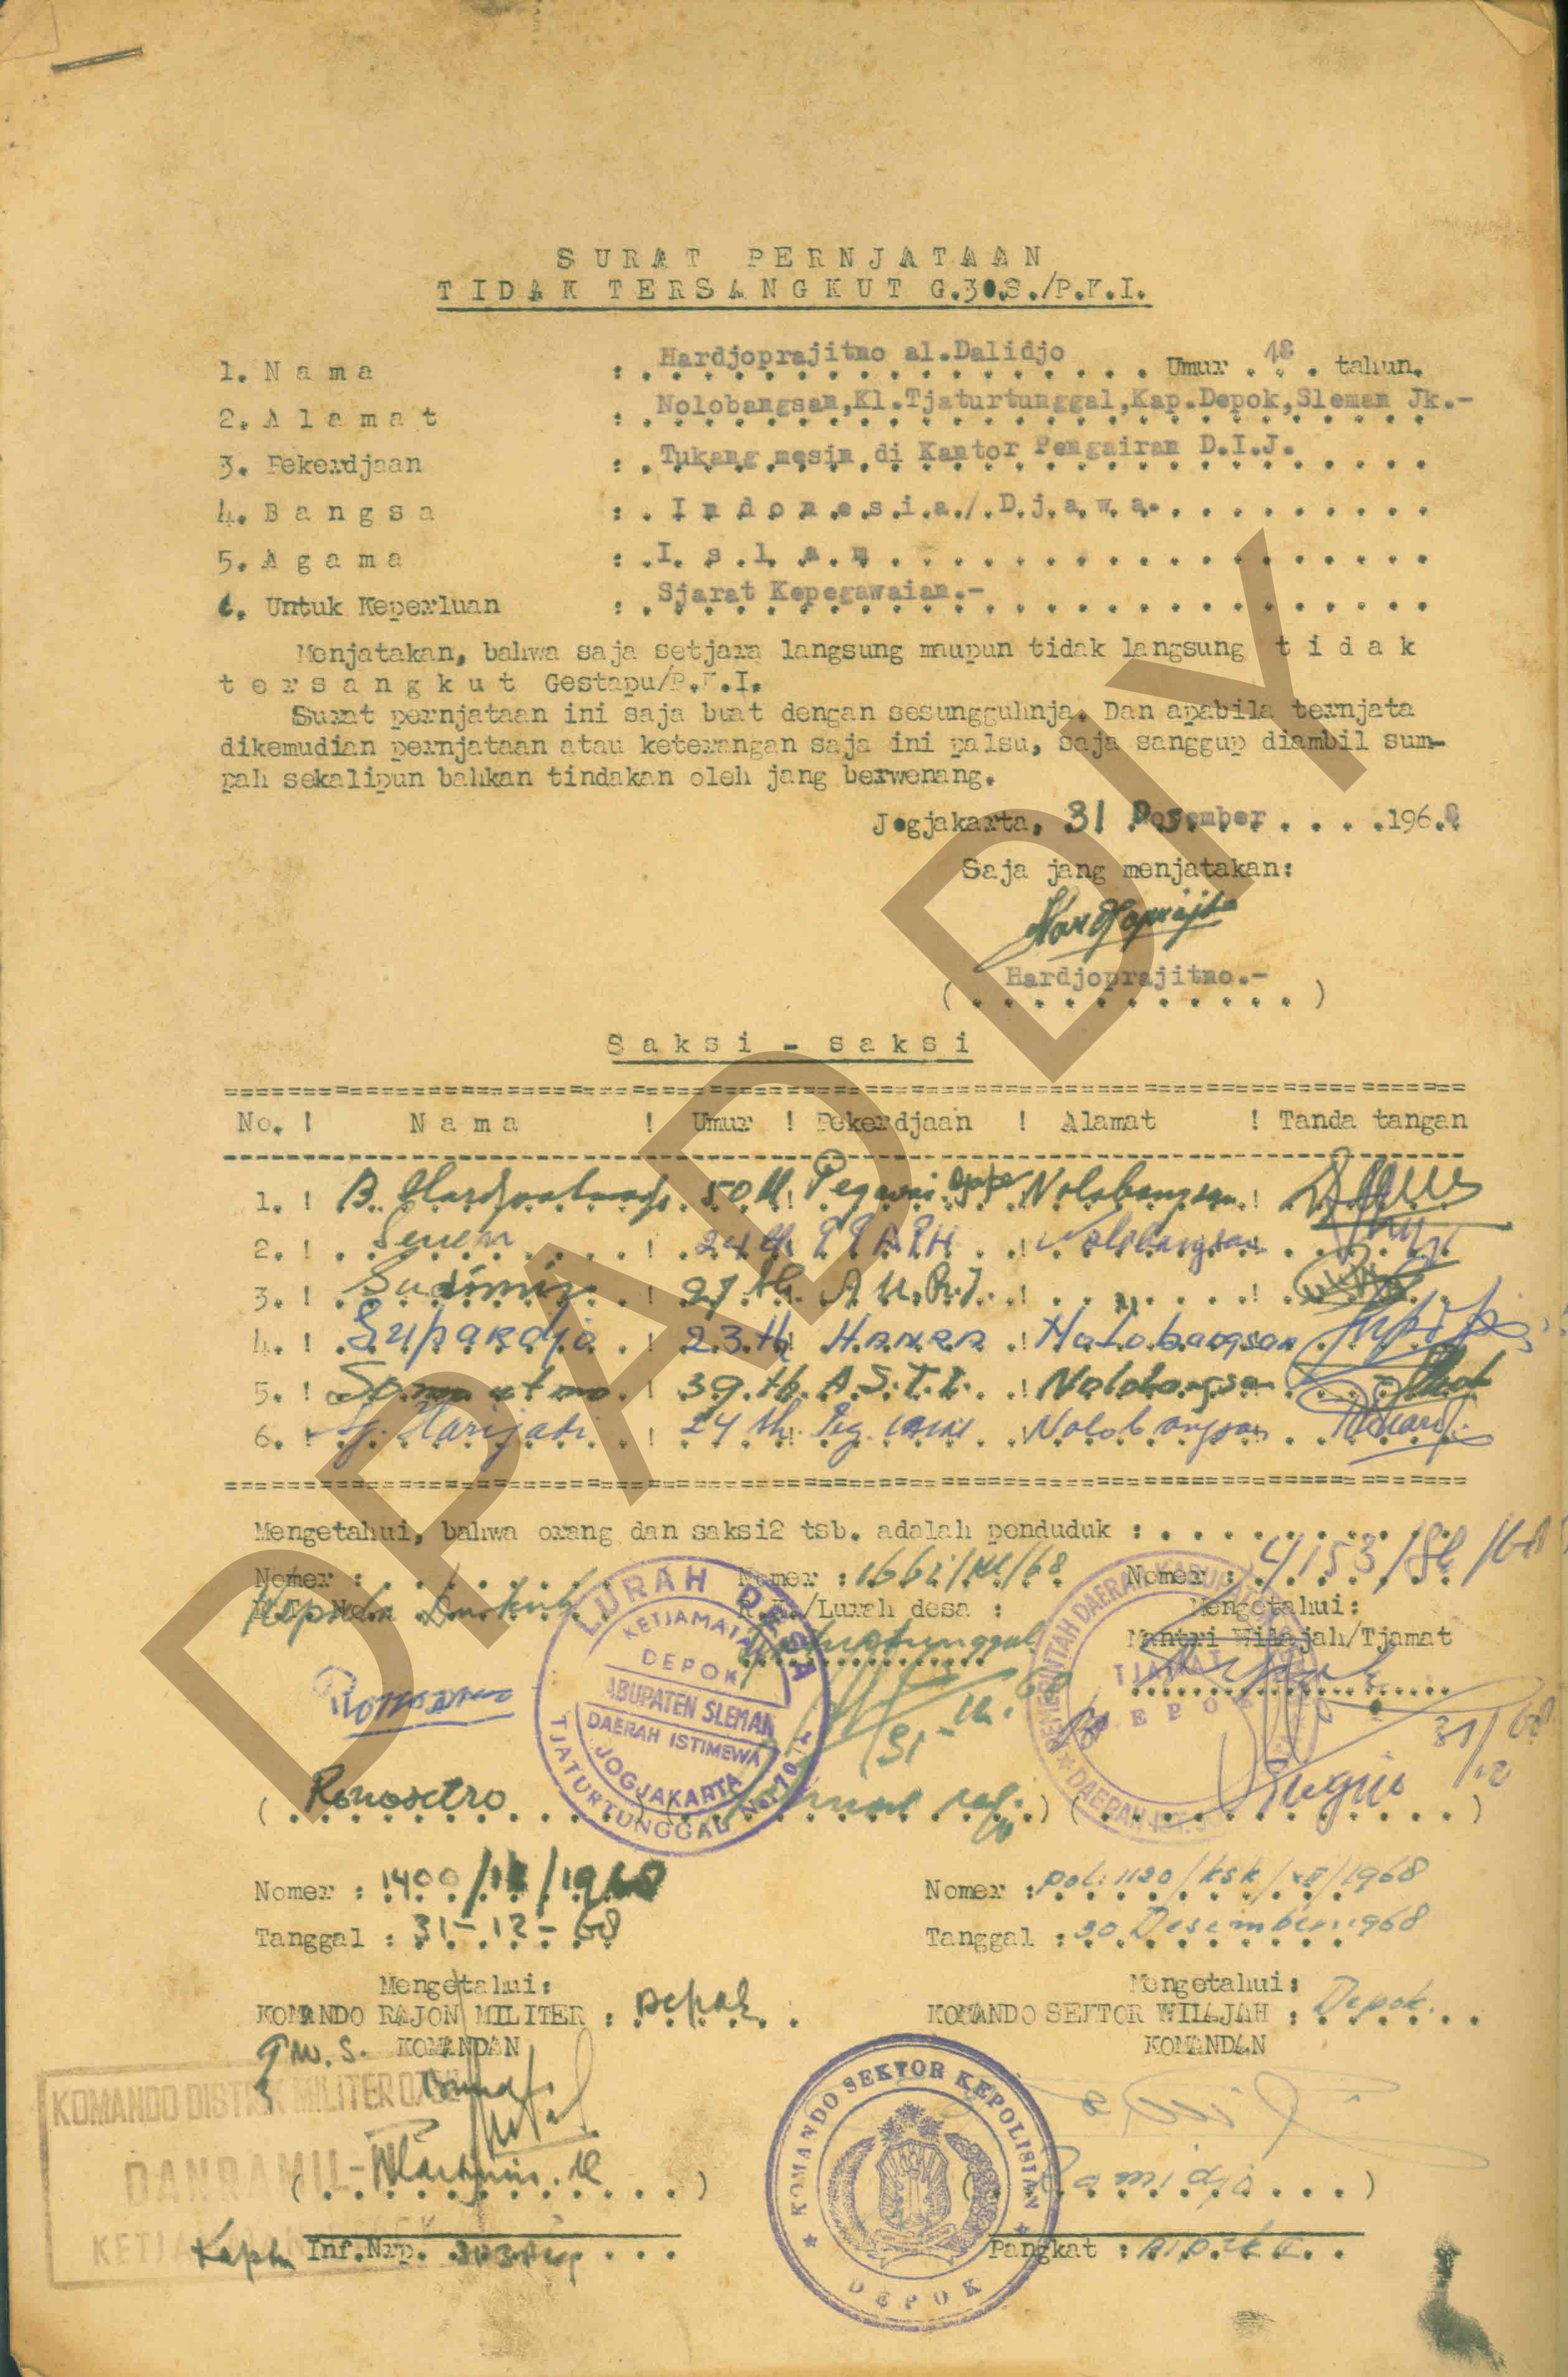 SURAT PERNJATAAN
TIDAK TERSANGKUT G.30.S./P.K.I.
1. Nama : Hardjoprajitno al.Dalidjo Umur 48 tahun.
2. Alamat : Nolobangsan,Kl.Tjaturtunggal,Kap.Depok,Sleman Jk.-
3. Pekerdjaan : Tukang mesin di Kantor Pengairan D.I.J.
4. Bangsa : Indonesia/Djawa.
5. Agama : Islam
6. Untuk Keperluan : Sjarat Kepegawaian.-
Menjatakan, bahwa saja setjara langsung maupun tidak langsung tidak
tersangkut Gestapu/P.K.I.
Surat pernjataan ini saja buat dengan sesungguhnja. Dan apabila ternjata
dikemudian pernjataan atau keterangan saja ini palsu, saja sanggup diambil sum-
pah sekalipun bahkan tindakan oleh jang berwenang.
Jogjakarta, 31 Desember 1968
Saja jang menjatakan:
Hardjoprajitno
( Hardjoprajitno.- )
Saksi - saksi
No. ! Nama ! Umur ! Pekerdjaan ! Alamat ! Tanda tangan
1. ! B. 50 th ! Pegawai Nolobangsan !
2. ! Senen ! 24 th. PPAPH ! Nolobangsan
3. ! Sudimin ! 27 th. A.U.R.I. ! " !
4. ! Supardjo ! 23 th ! ! Nolobangsan
5. ! ! 39 th. A.S.T.I. ! Nolobangsan
6. ! Harijadi ! 24 th. Peg. Nolobangsan
Mengetahui, bahwa orang dan saksi2 tsb. adalah penduduk :
Nomer : Nomer : 1662/KL/68 Nomer : 4153/ /68
Kepala Dukuh R.K./Lurah desa : Mengetahui:
Tjaturtunggal Mantri Wilajah/Tjamat
LURAH DESA
KETJAMATAN
DEPOK
KABUPATEN SLEMAN
DAERAH ISTIMEWA
JOGJAKARTA
TJATURTUNGGAL No. 70
PEMERINTAH DAERAH KABUPATEN
TJAMAT
DEPOK
DAERAH IST.
31-12-68 31/12 68
( Ronosetro ) ( ) ( )
Nomer : 1400/12/1968 Nomer : pol: 1120/ksk/XII/1968
Tanggal : 31-12-68 Tanggal : 30 Desember 1968
Mengetahui: Mengetahui:
KOMANDO RAJON MILITER : Depok KOMANDO SEKTOR WILAJAH : Depok.
KOMANDAN KOMANDAN
KOMANDO DISTRIK MILITER
DANRAMIL-
KOMANDO SEKTOR KEPOLISIAN
DEPOK
( ) ( Samidjo )
Kaptn Inf.Nrp. Pangkat :
DPAD DIY